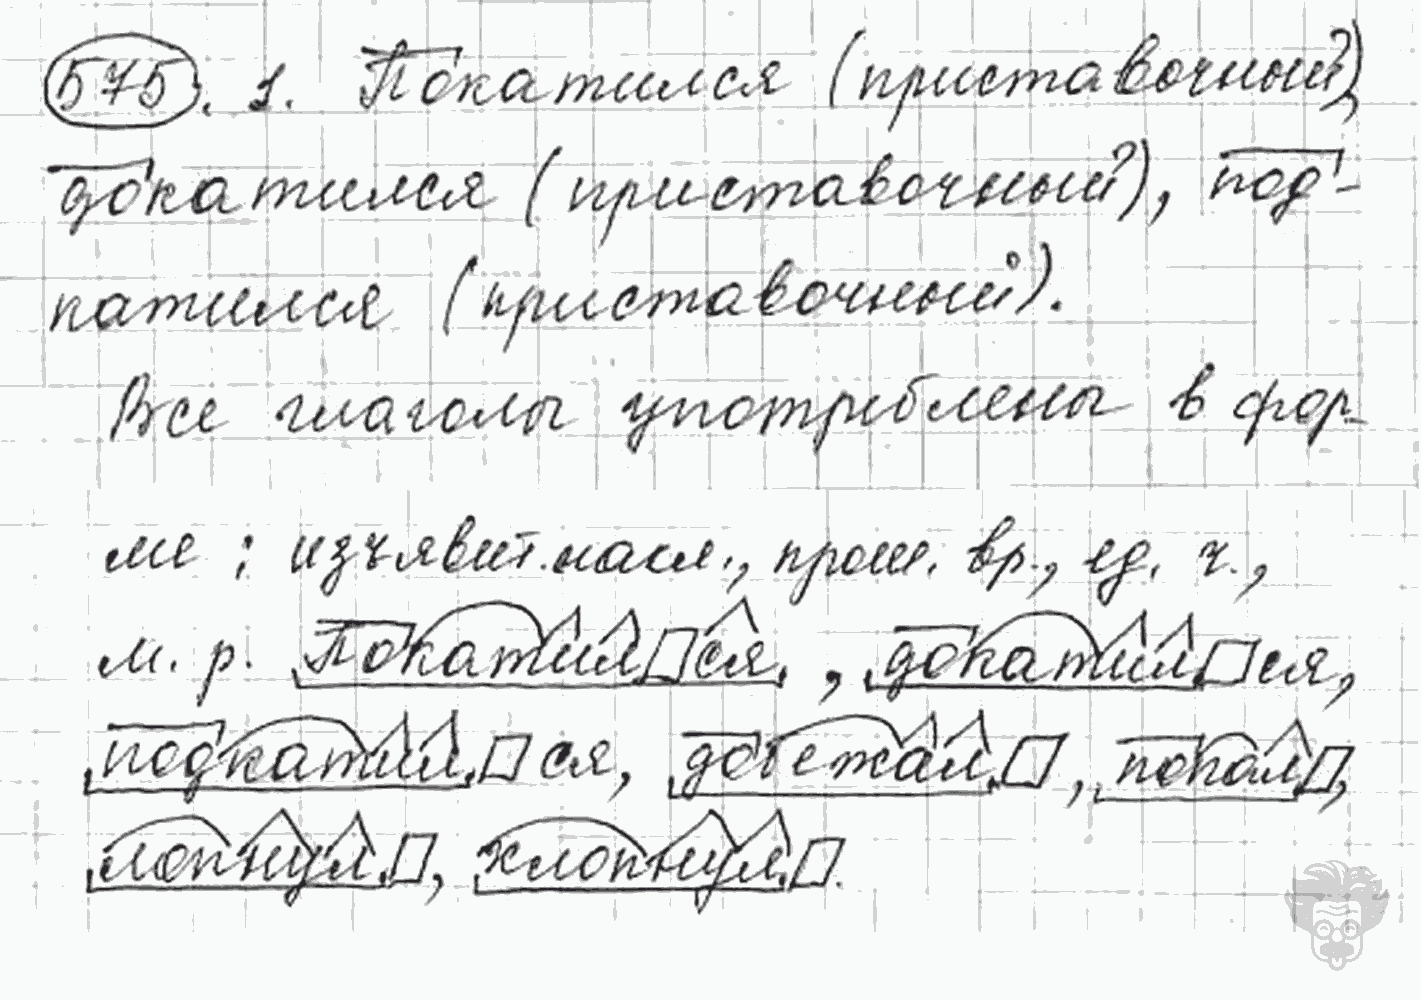 575. 1. Покатился (приставочный),
докатился (приставочный), под-
катился (приставочный).
Все глаголы употреблены в фор-
ме : изъявит. накл., прош. вр., ед. ч.,
м. р. Покатился, докатился,
подкатился, добежал, попал,
лопнул, хлопнул.